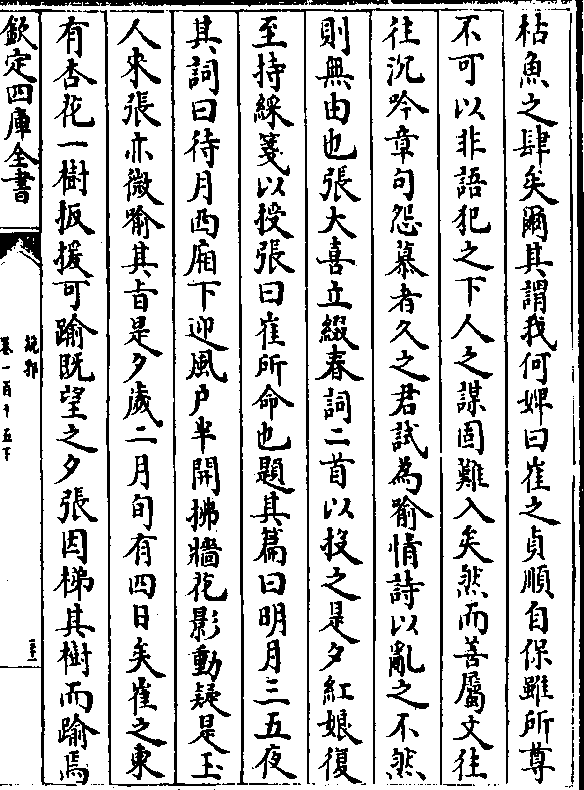 枯魚之肆矣爾其謂我何婢曰崔之貞順自保雖所尊
不可以非語犯之下人之謀固難入矣然而善屬文往
往沉吟章句怨慕者久之君試為喻情詩以亂之不然
則無由也張大喜立綴春詞二首以投之是夕紅娘復
至持綵箋以授張曰崔所命也題其篇曰明月三五夜
其詞曰待月西廂下迎風户半開拂牆花影動疑是玉
人來張亦微喻其旨是夕歲二月旬有四日矣崔之東
有杏花一樹扳援可踰既望之夕張因梯其樹而踰焉
欽定四庫全書
說郛
卷一百十五下